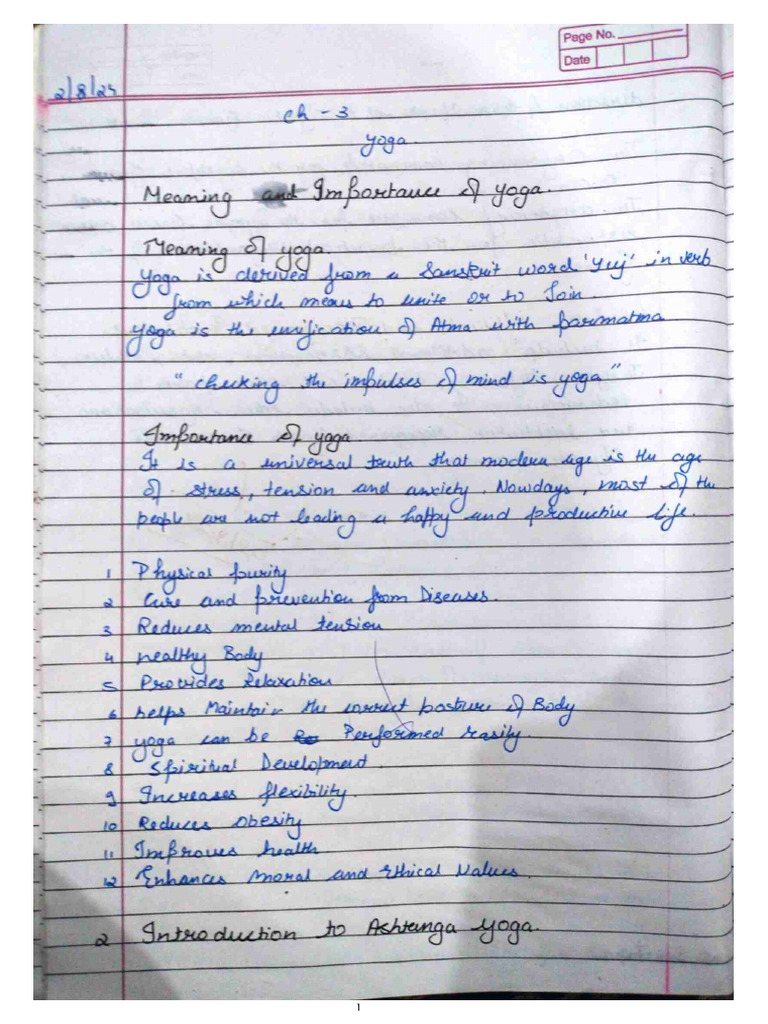 Page No.
Date
2/8/24
Ch - 3
yoga.
Meaning and Importance of yoga.
Meaning of yoga.
yoga is derived from a Sanskrit word 'Yuj' in verb
from which means to unite or to Join.
yoga is the unification of Atma with parmatma
"checking the impulses of mind is yoga"
Importance of yoga.
It is a universal truth that modern age is the age
of stress, tension and anxiety. Nowdays, most of the
people are not leading a happy and productive life.
1 Physical purity
2 Cure and prevention from Diseases.
3 Reduces mental tension
4 healthy Body
5 Provides Relaxation
6 helps Maintain the correct posture of Body
7 yoga can be Performed easily.
8 Spiritual Development.
9 Increases flexibility.
10 Reduces obesity
11 Improves health
12 Enhances moral and Ethical Values.
2 Introduction to Ashtanga yoga.
1